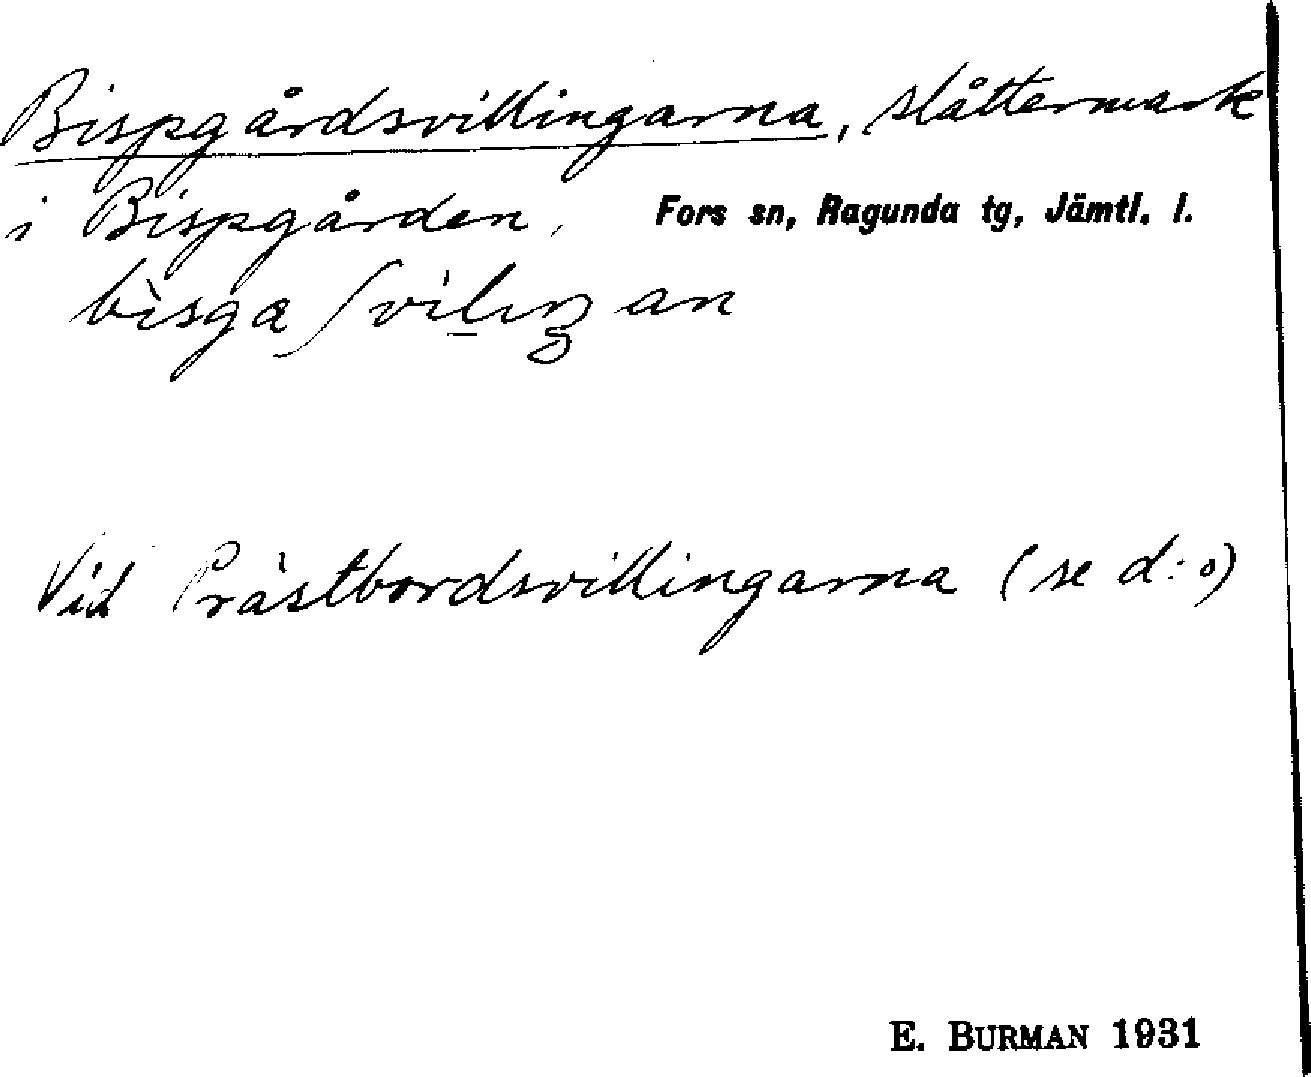 Bispgårdsvillingarna, slåttermark
i Bispgården, Fors sn, Ragunda tg, Jämtl. l.
Vid Prästbordsvillingarna (se d:o)
E. BURMAN 1931